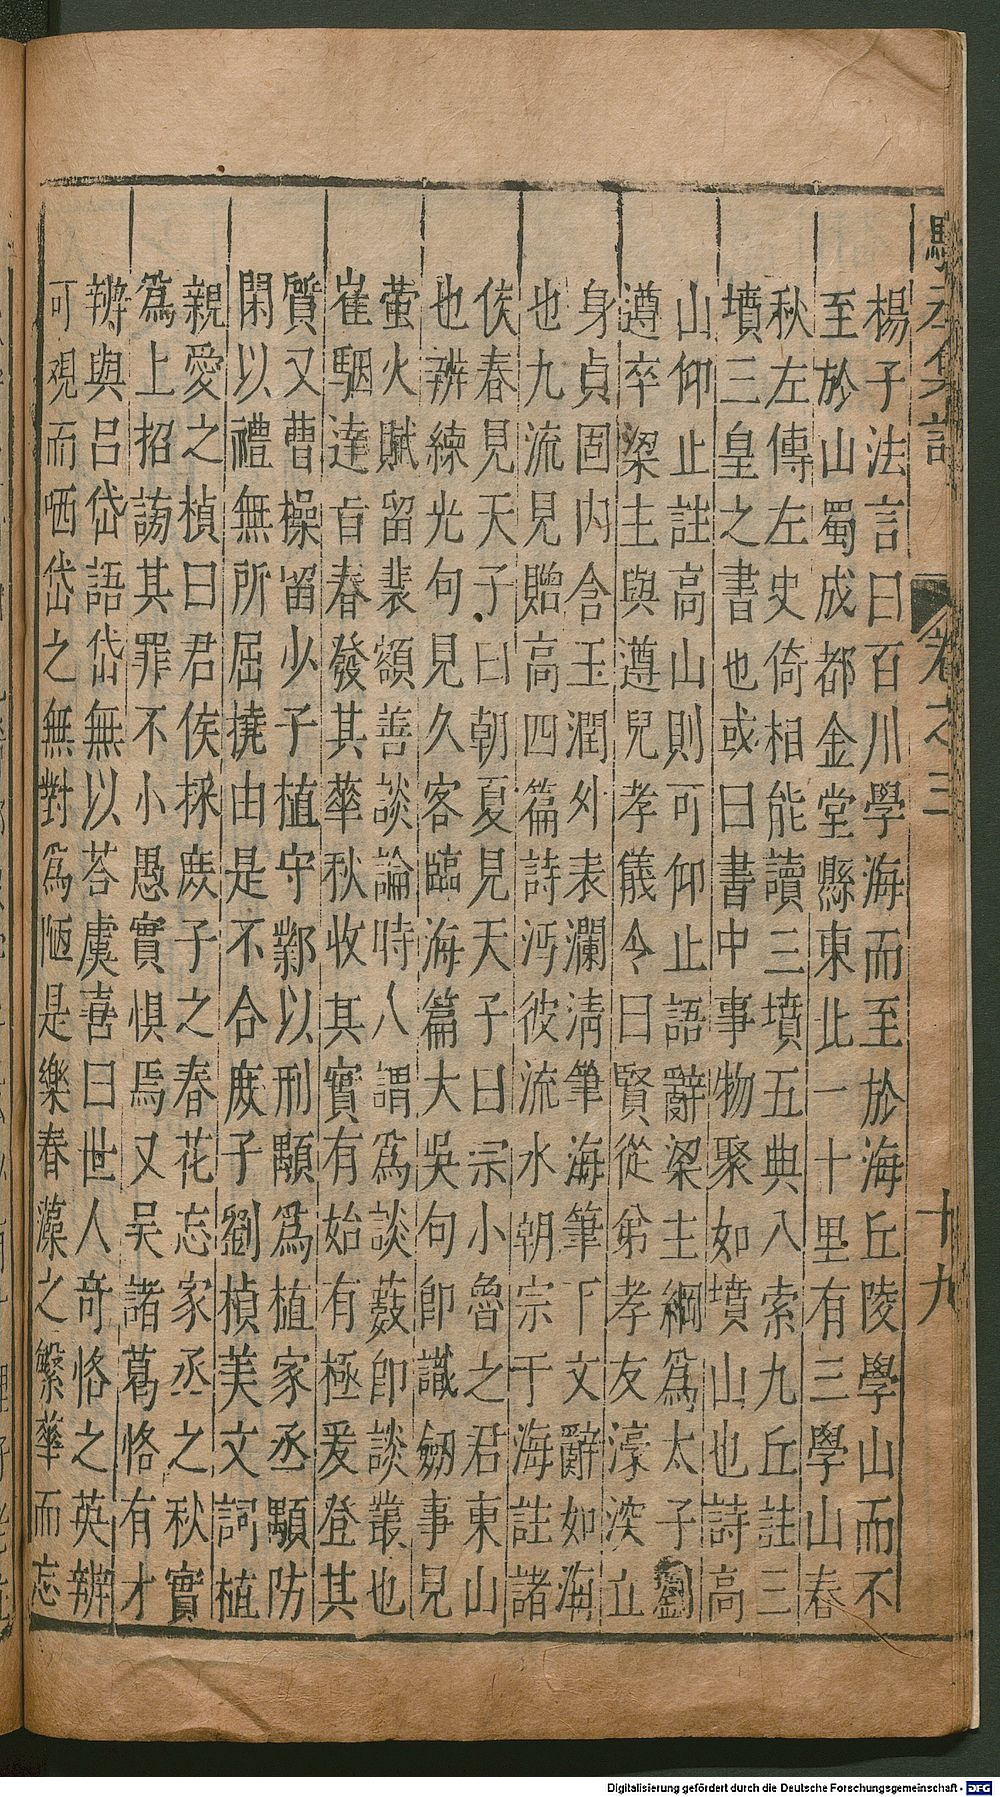 駱丞集註
卷之三
十九
楊子法言曰百川學海而至於海丘陵學山而不
至於山蜀成都金堂縣東北一十里有三學山春
秋左傳左史倚相能讀三墳五典八索九丘註三
墳三皇之書也或曰書中事物聚如墳山也詩高
山仰止註高山則可仰止語辭梁主綱爲太子劉
遵卒梁主與遵兒孝儀令曰賢從弟孝友濠深立
身貞固内含玉潤外表瀾淸筆海筆下文辭如海
也九流見贈高四篇詩沔彼流水朝宗于海註諸
侯春見天子曰朝夏見天子曰宗小魯之君東山
也辨練光句見久客臨海篇大吳句卽識劒事見
螢火賦留裴頠善談論時人謂爲談藪卽談叢也
崔駰達旨春發其華秋收其實有始有極爰登其
質又曹操留少子植守鄴以刑顒爲植家丞顒防
閑以禮無所屈撓由是不合庶子劉楨美文詞植
親愛之楨曰君侯採庶子之春花忘家丞之秋實
爲上招謗其罪不小愚實惧焉又吴諸葛恪有才
辨與呂岱語岱無以荅虞喜曰世人奇恪之英辨
可覌而哂岱之無對爲陋是樂春藻之繁華而忘
Digitalisierung gefördert durch die Deutsche Forschungsgemeinschaft - DFG